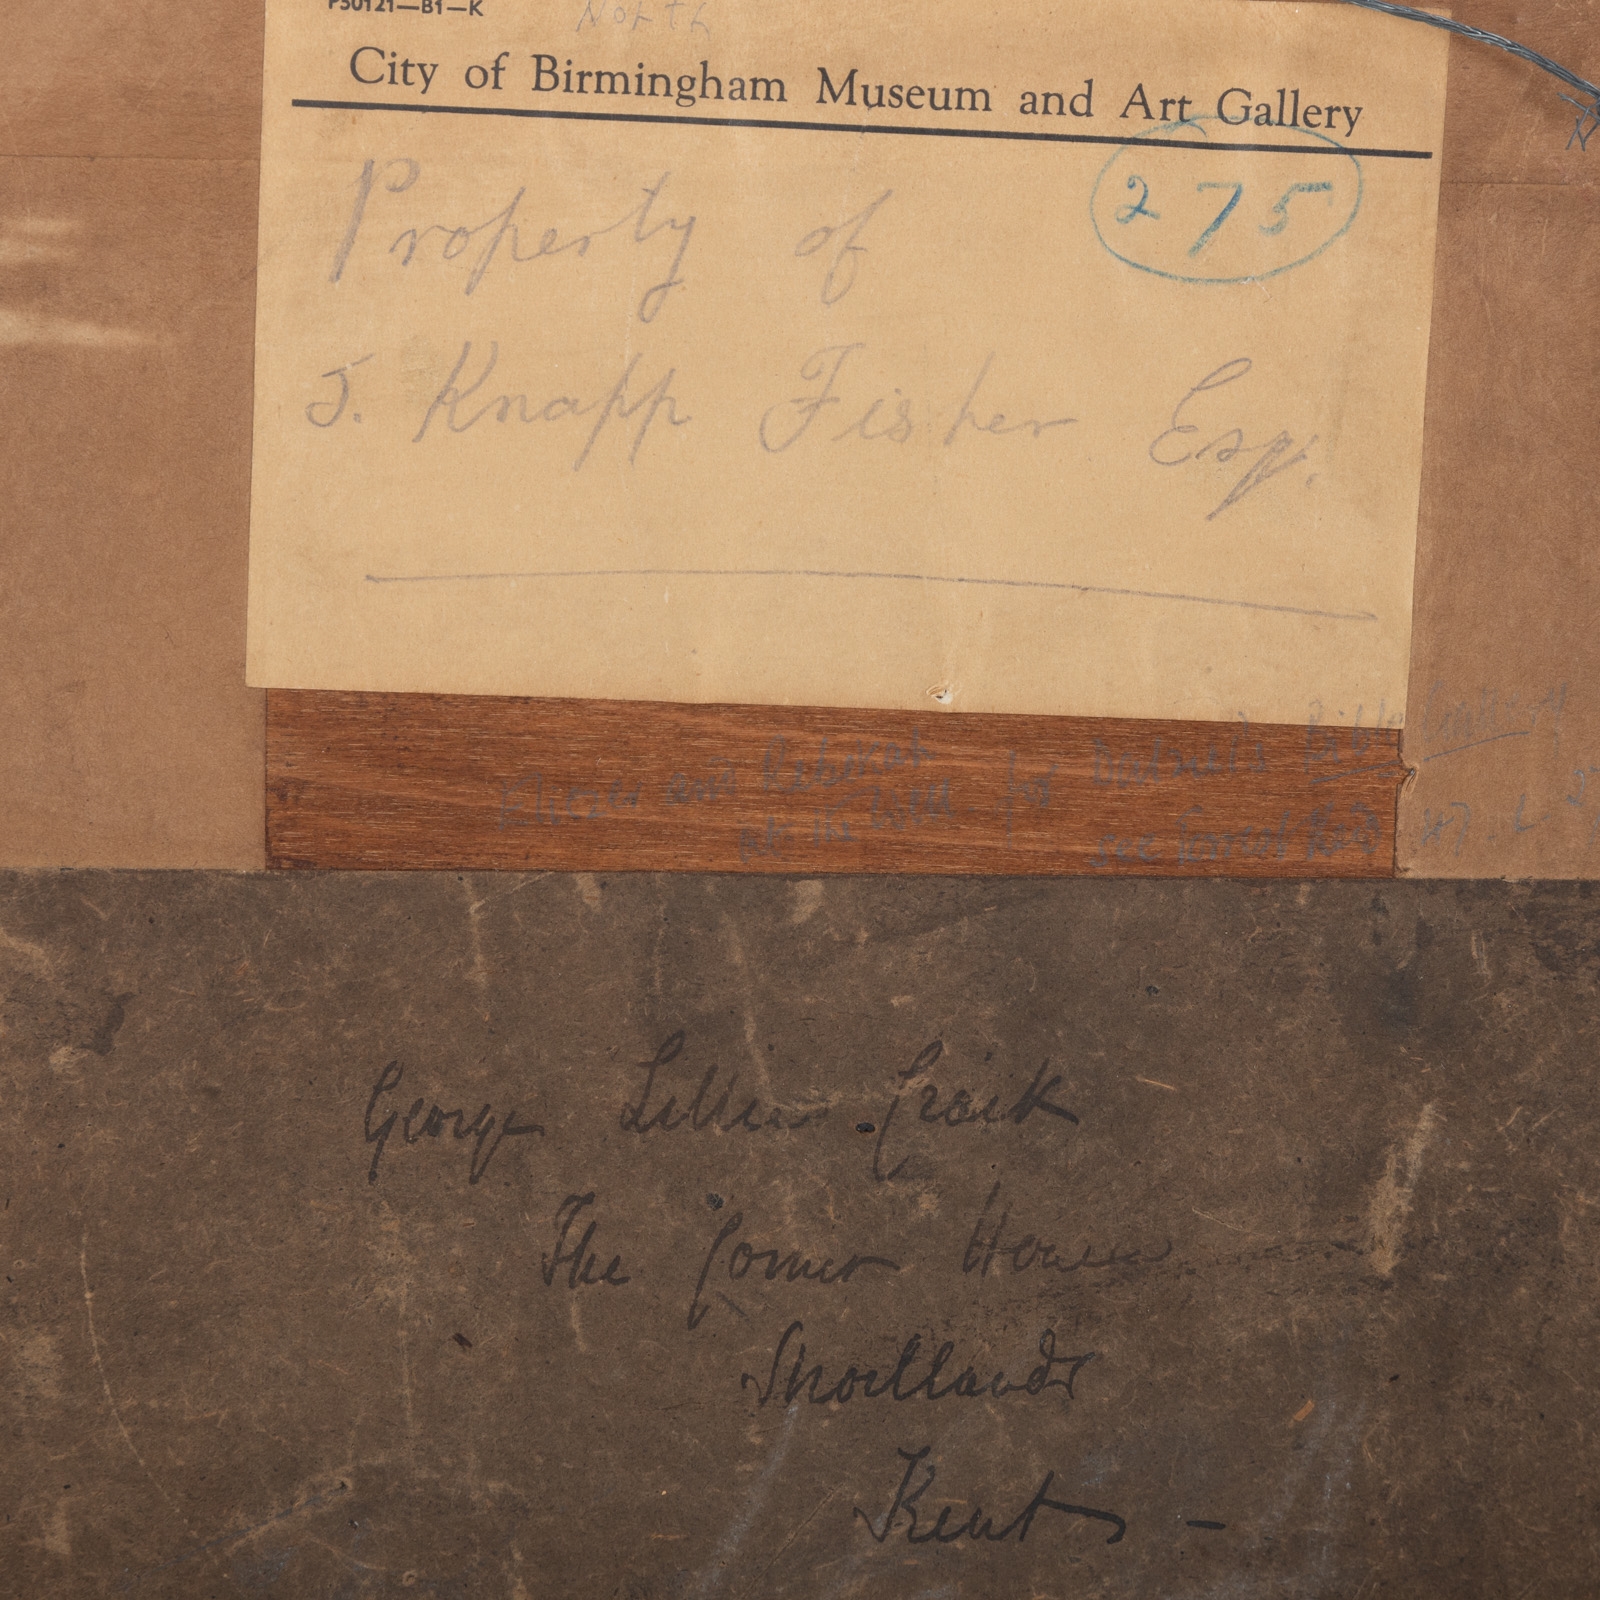 P50121—B1—K
North
City of Birmingham Museum and Art Gallery
275
Property of
J. Knapp Fisher Esq.
Eliezer and Rebekah
at the Well. for Dalziel's Bible Gallery
see Forrest Reid
George Lillie Craik
The Corner House
Shortlands
Kent -